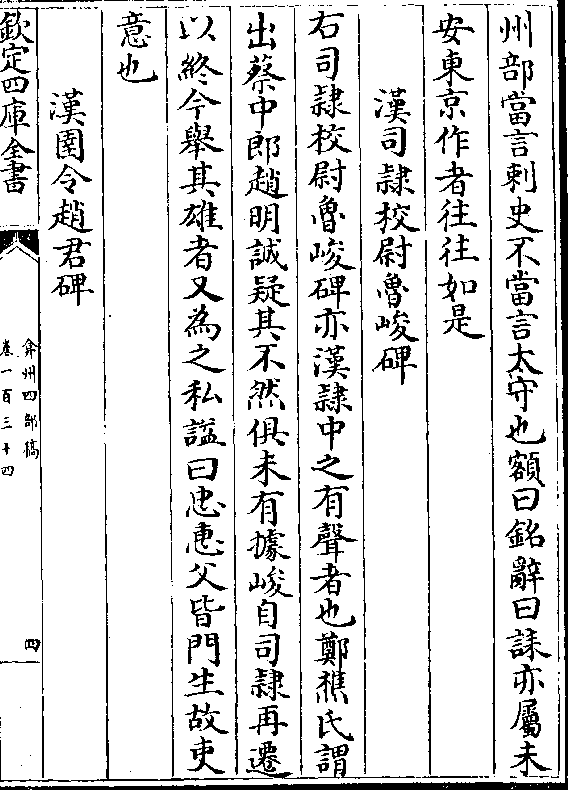 州部當言刺史不當言太守也額曰銘辭曰誄亦屬未
安東京作者往往如是
漢司隸校尉魯峻碑
右司隸校尉魯峻碑亦漢隸中之有聲者也鄭樵氏謂
出蔡中郎趙明誠疑其不然俱未有據峻自司隸再遷
以終今舉其雄者又為之私諡曰忠惠父皆門生故吏
意也
漢圉令趙君碑
欽定四庫全書
弇州四部稿
卷一百三十四
四